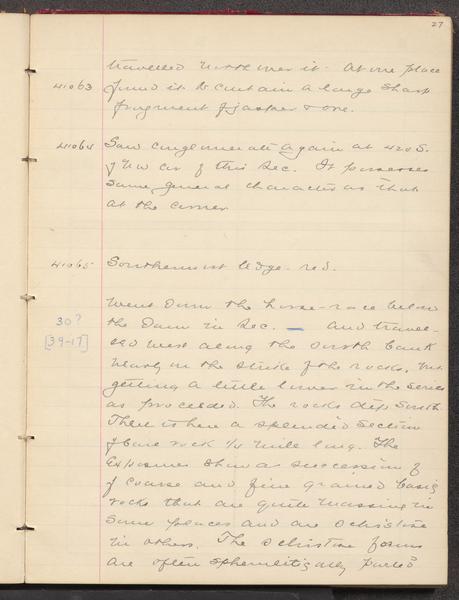 27
travelled north over it. At one place
41063 found it to contain a large sharp
fragment of jasper & ore.
41064 Saw conglomerate again at 420 S.
of NW cor of this Sec. It possesses
same general character as that
at the corner
41065 Southernmost ledge. red.
Went down the horse-race below
30? the Dam in Sec. — And travel-
[39-17] led west along the south bank
nearly on the strike of the rocks, but
getting a little lower in the series
as proceeded. The rocks dip South.
There is here a splendid section
of bare rock 1/4 mile long. The
exposures show a succession of
of coarse and fine grained basic
rocks that are quite massive in
some places and are schistose
in others. The schistose forms
are often spherulitically